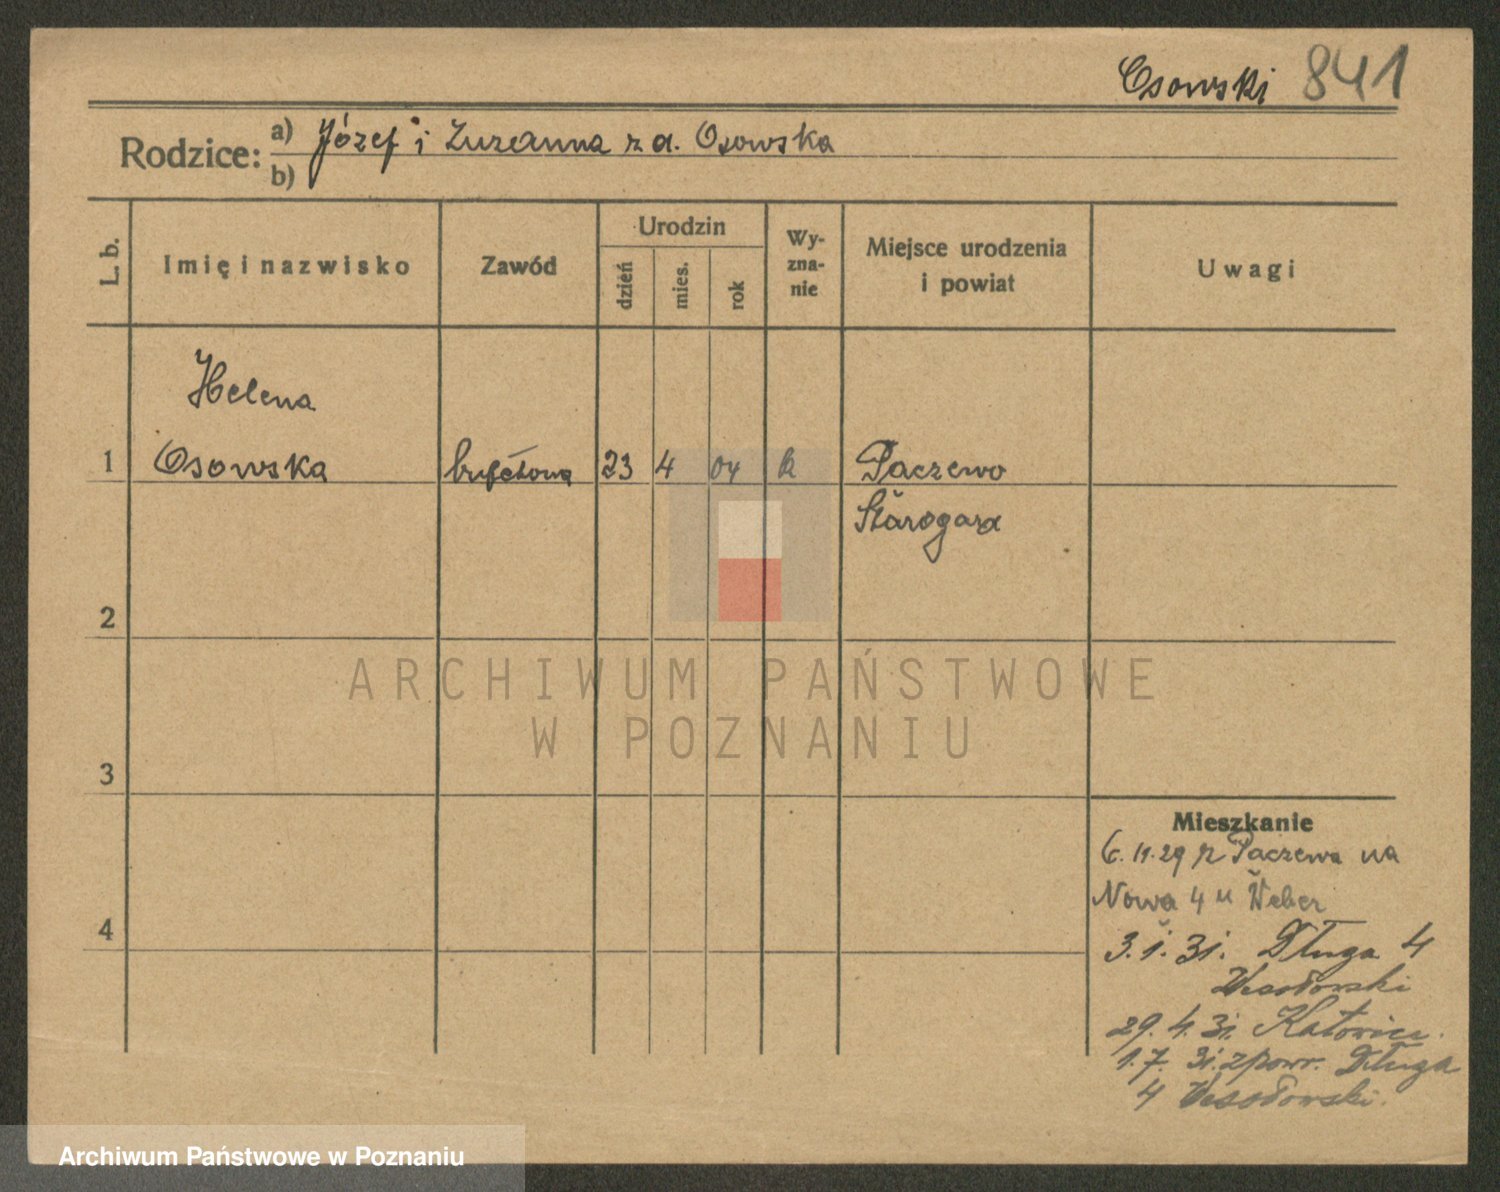 Osowski 841
Rodzice: a) Józef i Zuzanna z d. Osowska
b)
L. b.
Imię i nazwisko
Zawód
Urodzin
dzień
mies.
rok
Wy-
zna-
nie
Miejsce urodzenia
i powiat
Uwagi
Helena
1 Osowska bufetowa 23 4 04 k Paczewo
Starogard
2
3
4
Mieszkanie
6.11.29 z Paczewa na
Nowa 4 u Weber
3.1.31. Długa 4
Wesołowski
29.4.31. Katowice.
1.7.31. z powr. Długa
4 Wesołowski.
ARCHIWUM PAŃSTWOWE
W POZNANIU
Archiwum Państwowe w Poznaniu